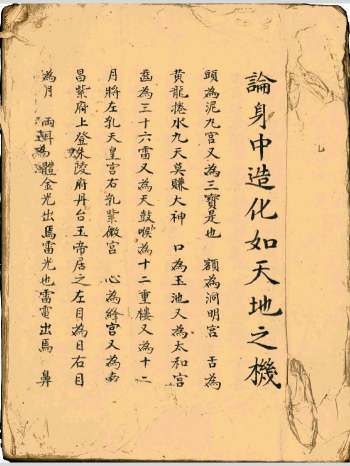 論身中造化如天地之機
頭為泥九宮又為三寶是也 額為洞明宮 舌為
黄龍捲水九天莫賺大神 口為玉池又為太和宮
齒為三十六雷又為天鼓喉為十二重樓又為十二
月將左乳天皇宮右乳紫微宮 心為絳宮又為南
昌紫府上登朱陵府丹台玉帝居之左目為日右目
為月 兩耳為體金光出馬雷光也雷電出馬 鼻